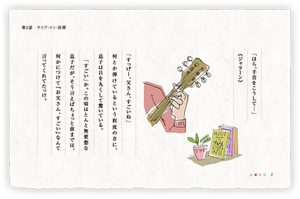 第2話 ライブ・イン・悲策
「ほら、手首をこうして…」
《ジャラーン》
「すっげー。父さん、すごいね」
何とか弾けているという程度の音に、
息子は目を丸くして驚いている。
「すごい」か。この頃はとんと無愛想な
息子だが、そう言えばちょっと前までは、
何かにつけて『お父さん、すごい』なんて
言ってくれてたっけ。
2